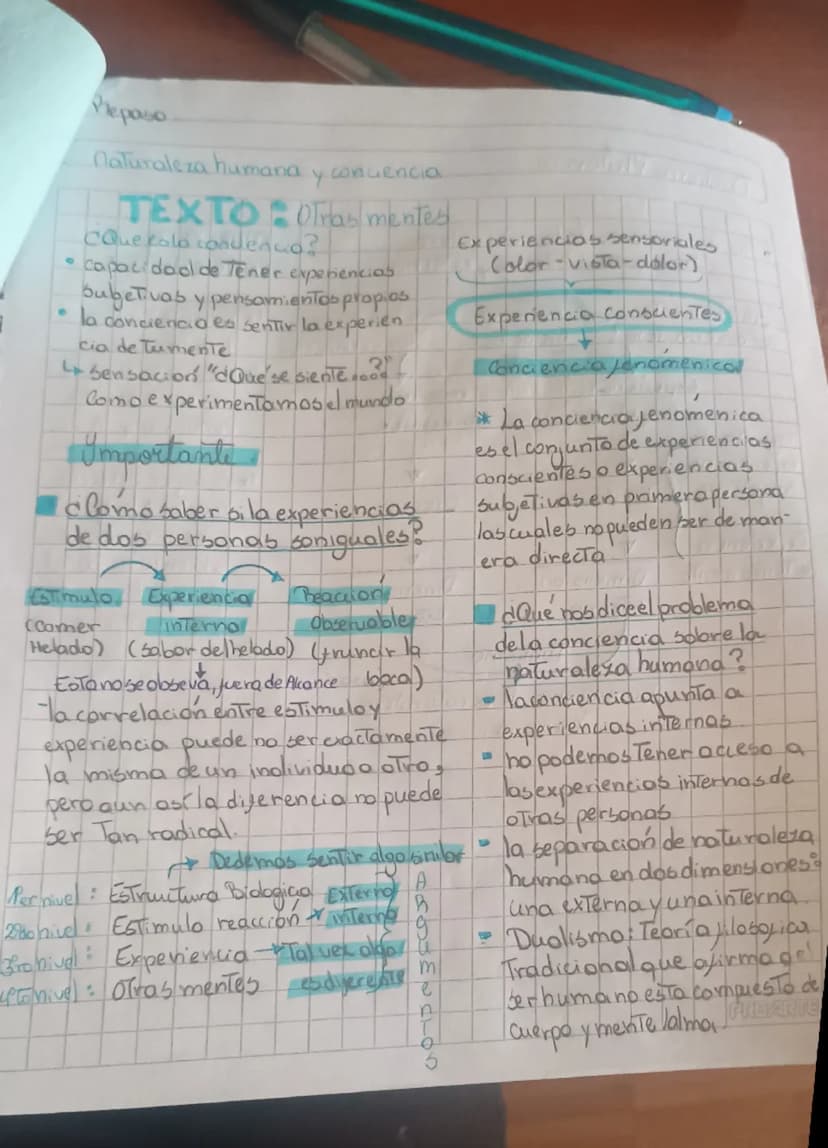 Repaso
Naturaleza humana y conciencia
TEXTO: Otras mentes
¿Que es la conciencia?
• capacidad de Tener experiencias
subjetivas y pensamientos propios
• la conciencia es sentir la experien
cia de Tu mente
↳ sensación "¿Qué se siente....?"
como experimentamos el mundo
Importante
¿Cómo saber si la experiencias
de dos personas son iguales?
Estimulo Experiencia Reacción
(comer interna observable
Helado) (sabor del helado) (fruncir la
Esta no se observa, fuera de Alcance boca)
-la correlación entre estimulo y
experiencia puede no ser exactamente
la misma de un individuo a otro,
pero aun así la diferencia no puede
ser Tan radical.
→ Debemos sentir algo similar
1er nivel: Estructura Biologica Externo
2do nivel: Estimulo reacción → interno
3ro nivel: Experiencia → Tal vez algo
4to nivel: Otras mentes es diferente
Argumentos
Experiencias sensoriales
(olor - vista - dolor)
Experiencia conscientes
Conciencia fenoménica
* La conciencia fenoménica
es el conjunto de experiencias
conscientes o experiencias
subjetivas en primera persona
las cuales no pueden ser de man-
era directa
¿Qué nos dice el problema
de la conciencia sobre la
naturaleza humana?
- la conciencia apunta a
experiencias internas
- no podemos Tener acceso a
las experiencias internas de
otras personas
- la separación de naturaleza
humana en dos dimensiones:
una externa y una interna
- Dualismo: Teoría filosofica
Tradicional que afirma q el
ser humano esta compuesto de
cuerpo y mente /alma.